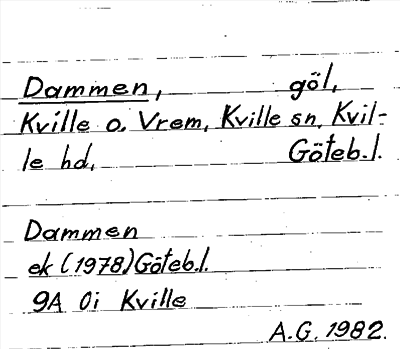 Dammen, göl,
Kville o. Vrem, Kville sn, Kvil-
le hd, Göteb.l.
Dammen
ek (1978) Göteb.l.
9A 0i Kville
A.G. 1982.